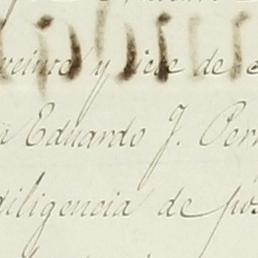 veinte y siete de e
Eduardo J. Per
diligencia de pos